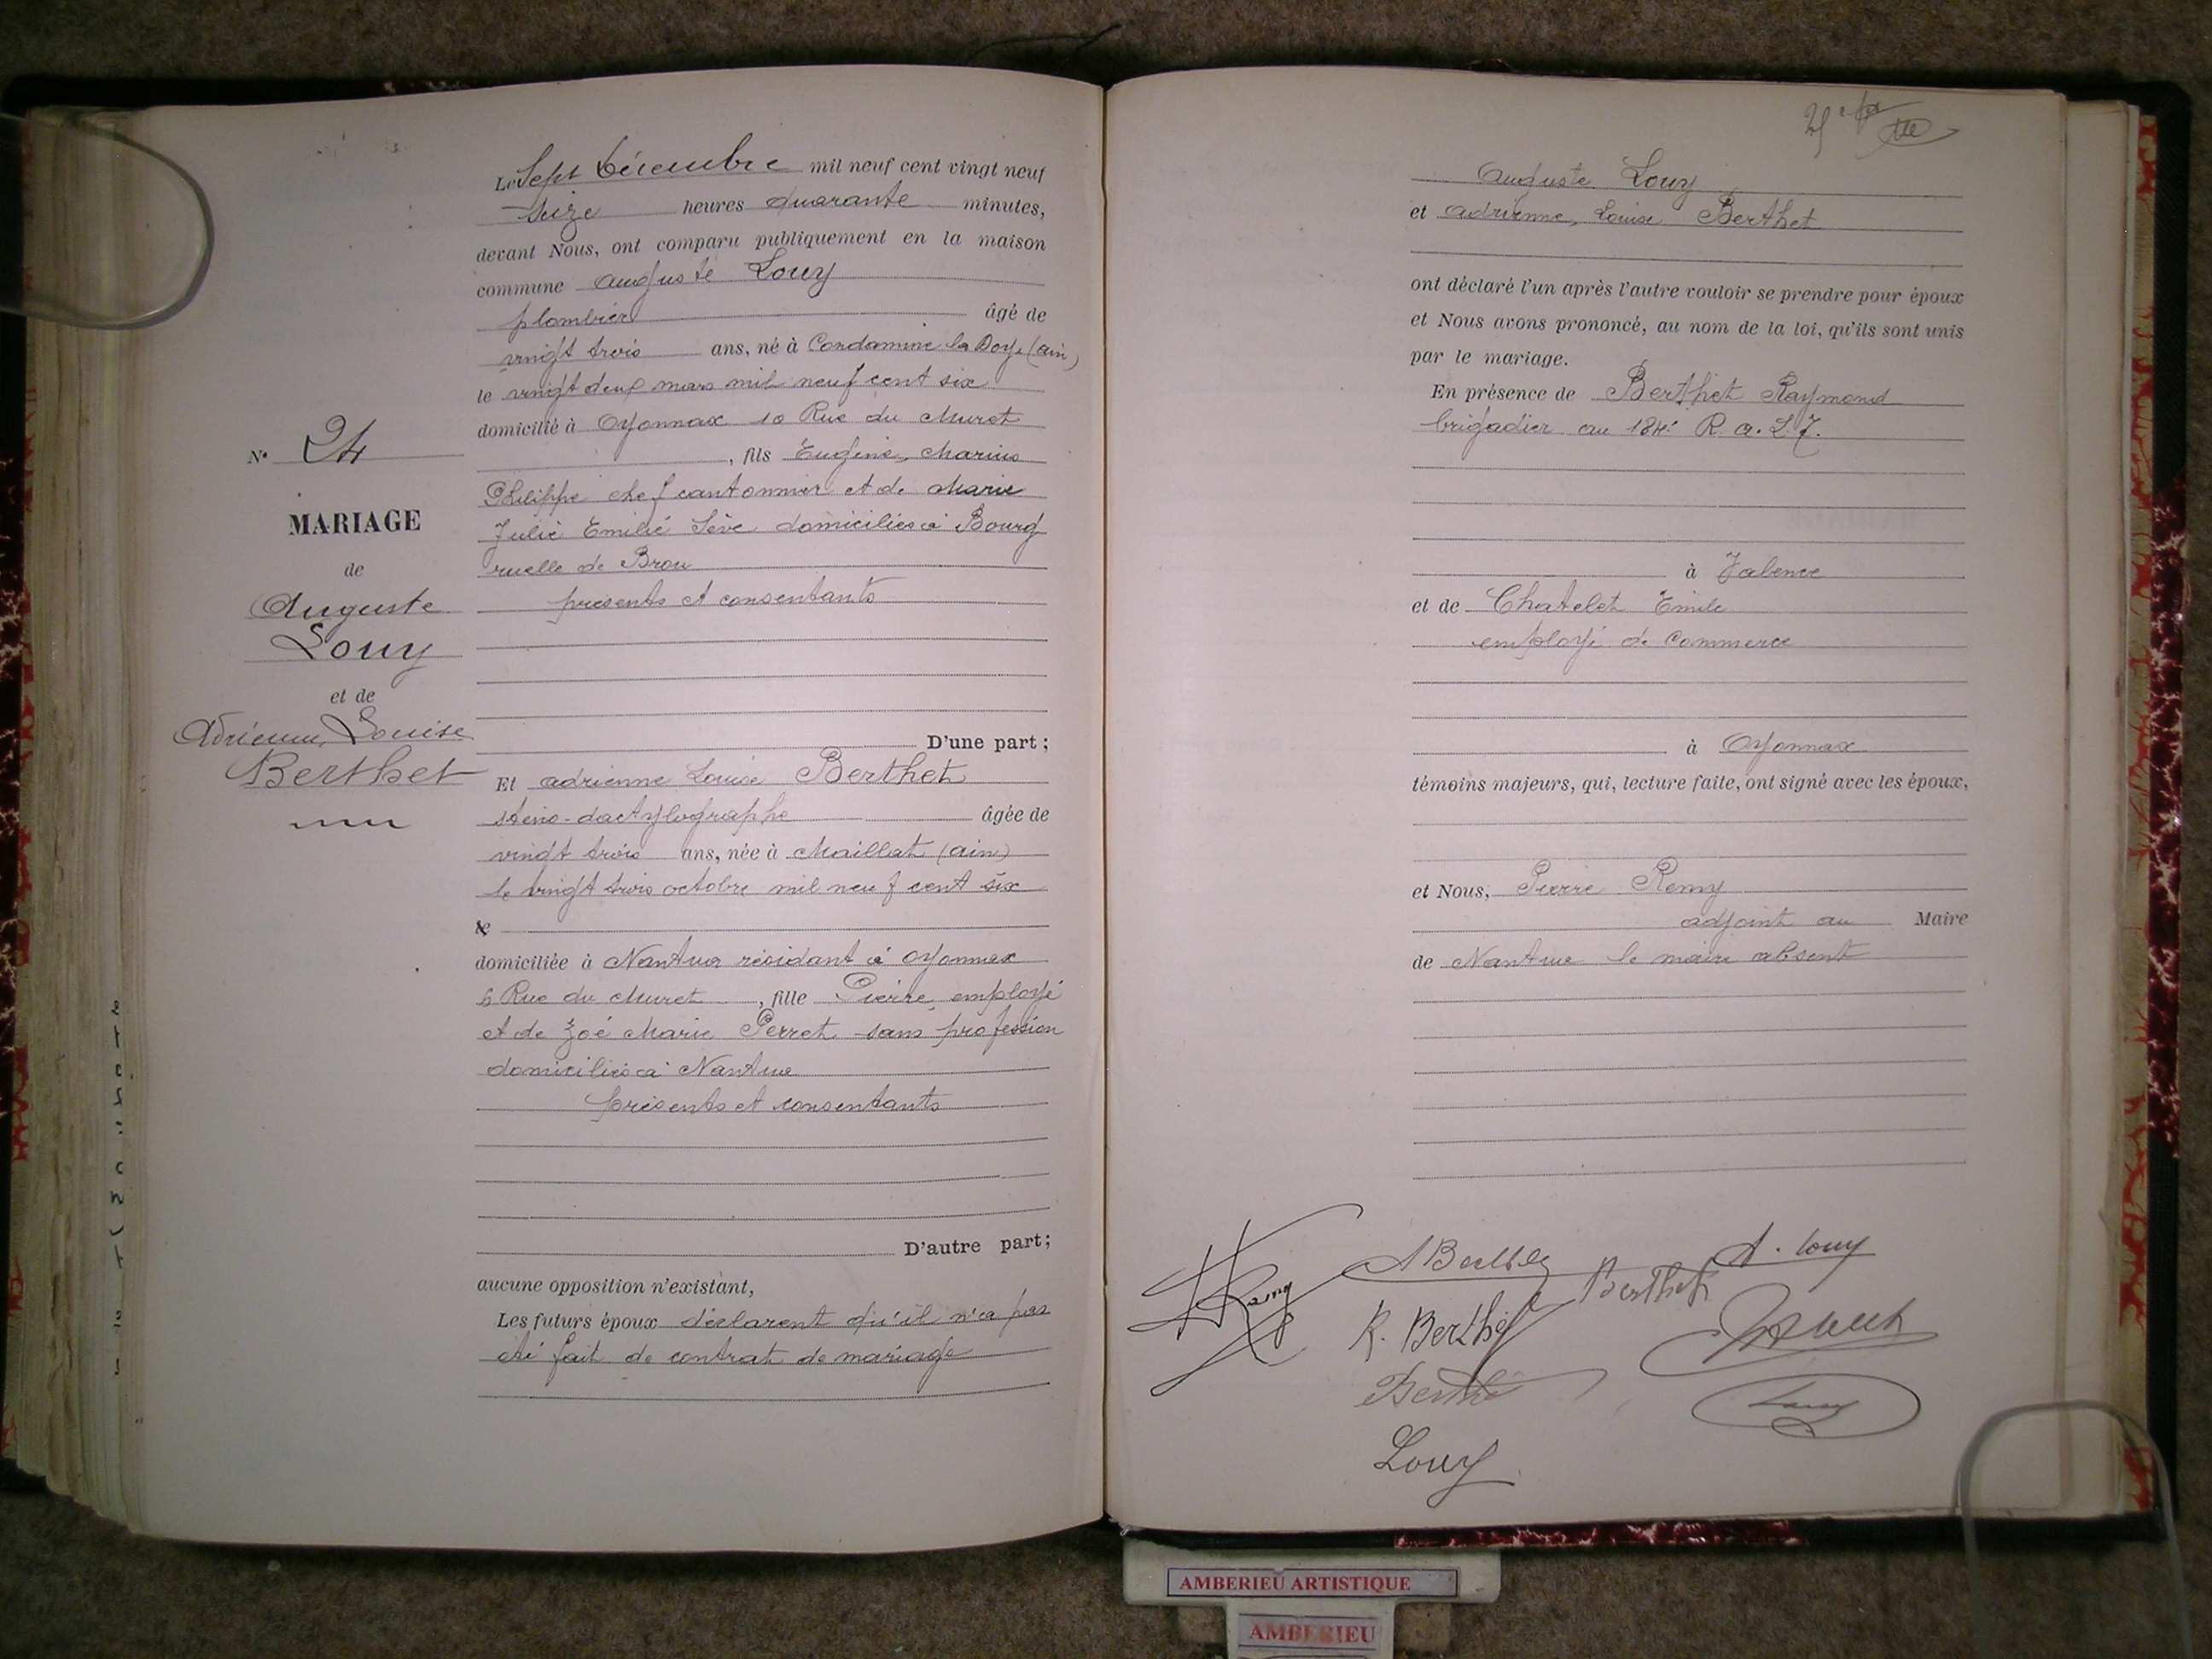 Le Sept Décembre mil neuf cent vingt neuf
Seize heures quarante minutes,
devant Nous, ont comparu publiquement en la maison
commune Auguste Louy
plombier âgé de
vingt trois ans, né à Condamine la Doye (Ain)
le vingt deux mars mil neuf cent six
domicilié à Oyonnax 10 Rue du Muret
, fils Eugène, Marius
Philippe chef cantonnier et de Marie
Julie Emilie Sève domiciliés à Bourg
ruelle de Brou
présents et consentants
N° 24
MARIAGE
de
Auguste
Louy
et de
Adrienne, Louise
Berthet
D'une part ;
Et Adrienne Louise Berthet
sténo-dactylographe âgée de
vingt trois ans, née à Maillat (Ain)
le vingt trois octobre mil neuf cent six
le
domiciliée à Nantua résidant à Oyonnax
6 Rue du Muret, fille Pierre, employé
et de Zoé Marie Perret sans profession
domiciliés à Nantua
présents et consentants
D'autre part ;
aucune opposition n'existant,
Les futurs époux déclarent qu'il n'a pas
été fait de contrat de mariage
Auguste Louy
et Adrienne, Louise Berthet
ont déclaré l'un après l'autre vouloir se prendre pour époux
et Nous avons prononcé, au nom de la loi, qu'ils sont unis
par le mariage.
En présence de Berthet Raymond
brigadier au 184e R. A. L. T.
à Valence
et de Chatelet Emile
employé de commerce
à Oyonnax
témoins majeurs, qui, lecture faite, ont signé avec les époux,
et Nous, Pierre Remy
adjoint au Maire
de Nantua le maire absent
A Berthet
A. Louy
Berthet
R. Berthet
Louy
AMBERIEU ARTISTIQUE
AMBERIEU